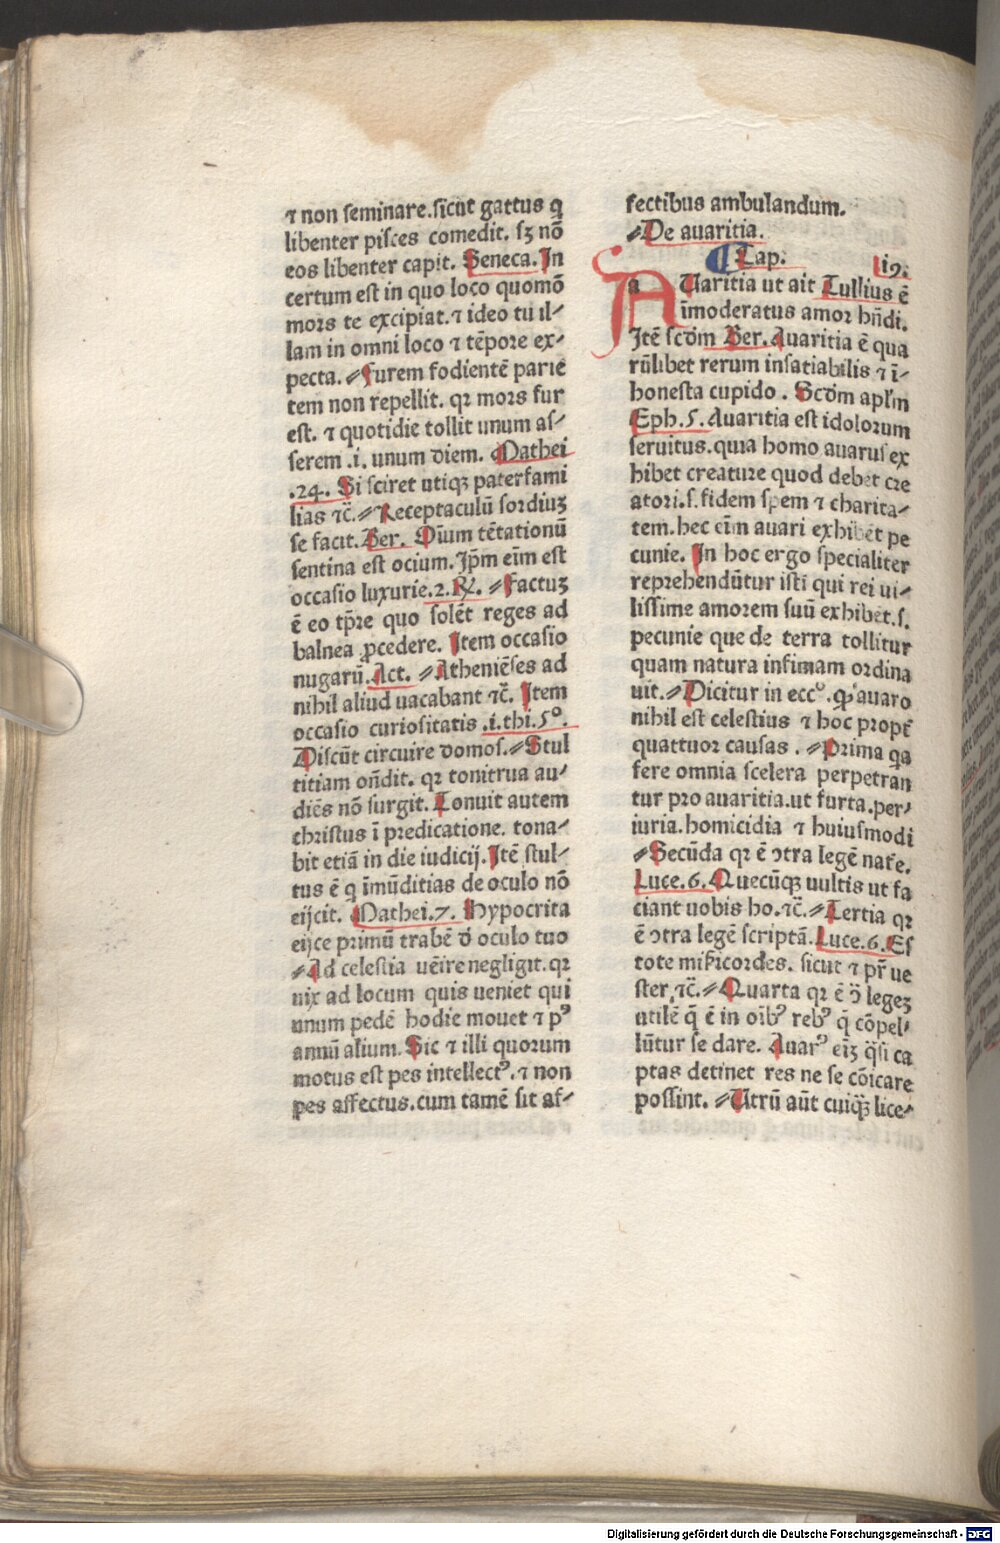 ⁊ non seminare.sicut̄ gattus q̄
libenter pisces comedit. sꝫ nō
eos libenter capit. Seneca. In
certum est in quo loco quomō
mors te excipiat.⁊ ideo tu il⸗
lam in omni loco ⁊ tēpore ex⸗
pecta.⸗Furem fodientē parie
tem non repellit. qꝛ mors fur
est. ⁊ quotidie tollit unum as⸗
serem .i. unum diem. Mathei
.24. Si sciret utiqꝫ paterfami
lias ⁊c̄.⸗Receptaculū sordiuꝫ
se facit. Ber. Oīum tētationū
sentina est ocium. Ip̄m eīm est
occasio luxurie.2.℟. ⸗Factuꝫ
ē eo tp̄re quo solēt reges ad
balnea ꝓcedere. Item occasio
nugarū. Act. ⸗Atheniēses ad
nihil aliud uacabant ⁊c̄. Item
occasio curiositatis .i.thi.5°.
Discūt circuire domos.⸗Stul
titiam on̄dit. qꝛ tonitrua au⸗
diēs nō surgit. Tonuit autem
christus ī predicatione. tona⸗
bit etiā in die iudicij. Itē stul⸗
tus ē q̄ īmūditias de oculo nō
eijcit. Mathei.7. Hypocrita
eijce primū trabē d̄ oculo tuo
⸗Ad celestia uēire negligit.qꝛ
uix ad locum quis ueniet qui
unum pedē hodie mouet ⁊ pꝰ
annū alium. Sic ⁊ illi quorum
motus est pes intellectꝰ.⁊ non
pes affectus.cum tamē sit af⸗
fectibus ambulandum.
⸗De auaritia.
Cap. lij.
a Uaritia ut ait Tullius ē
īmoderatus amor hn̄di.
Itē scdm̄ Ber. Auaritia ē qua
rūlibet rerum insatiabilis ⁊ ī⸗
honesta cupido . Scdm̄ apl'm
Eph.5. Auaritia est idolorum
seruitus.quia homo auarus ex
hibet creature quod debet cre
atori.s.fidem spem ⁊ charita⸗
tem.hec eīm auari exhibēt pe
cunie. In hoc ergo specialiter
reprehendūtur isti qui rei ui⸗
lissime amorem suū exhibēt.s.
pecunie que de terra tollitur
quam natura infimam ordina
uit.⸗Dicitur in ecc°. ꝙ auaro
nihil est celestius ⁊ hoc propt̄
quattuor causas . ⸗Prima qa
fere omnia scelera perpetran
tur pro auaritia.ut furta.per⸗
iuria.homicidia ⁊ huiusmodi
⸗Secūda qꝛ ē ↄtra legē nat̄e.
Luce.6. Quecūqꝫ uultis ut fa
ciant uobis ho.⁊c̄.⸗Tertia qꝛ
ē ↄtra legē scriptā. Luce.6. Es
tote mīsericordes. sicut ⁊ pr̄ ue
ster,⁊c̄.⸗Quarta qꝛ ē ↄ̄ legeꝫ
utilē q̄ ē in oībꝰ rebꝰ q̄ cōpel⸗
lūtur se dare. Auarꝰ eīꝫ q̄si ca
ptas detinet res ne se cōicare
possint. ⸗Utrū aūt cuiqꝫ lice⸗
Digitalisierung gefördert durch die Deutsche Forschungsgemeinschaft - DFG